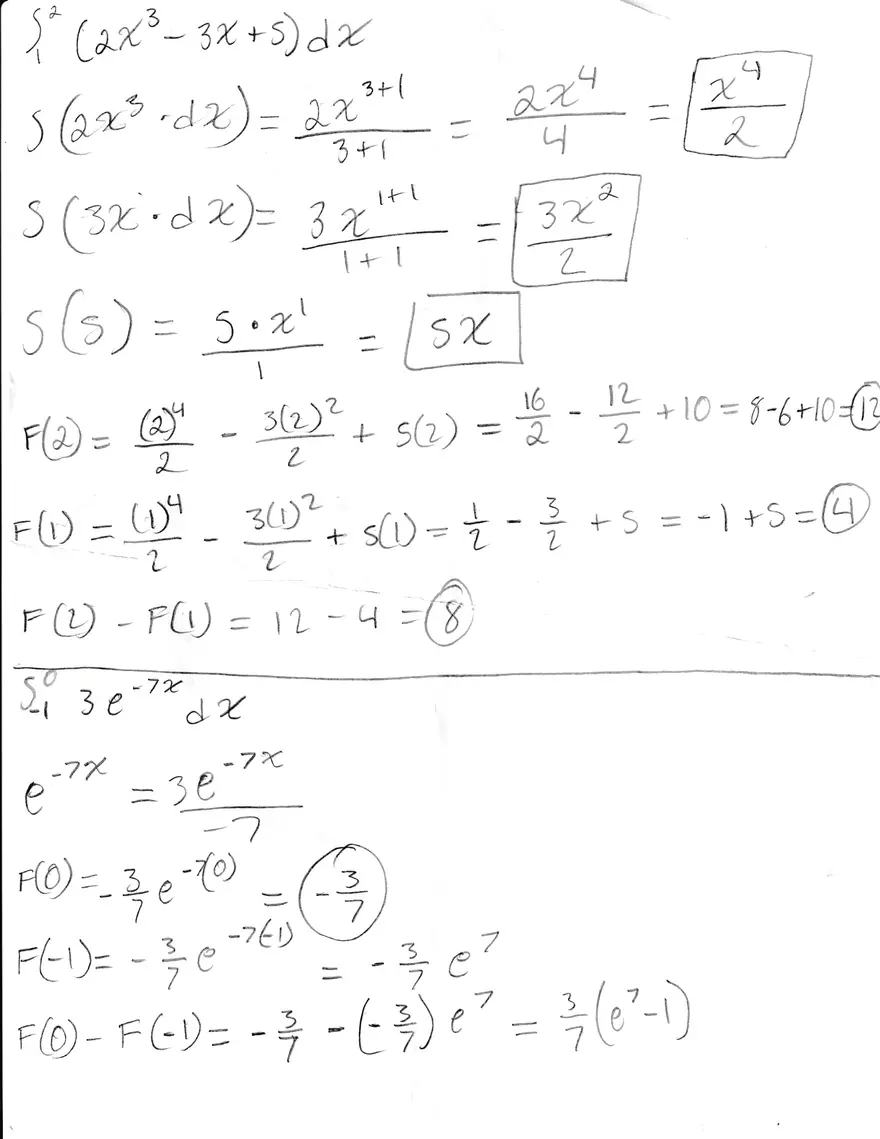 ∫₁² (2x³ - 3x + 5) dx
∫(2x³ · dx) = 2x³⁺¹/3+1 = 2x⁴/4 = x⁴/2
∫(3x · dx) = 3x¹⁺¹/1+1 = 3x²/2
∫(5) = 5 · x¹/1 = 5x
F(2) = (2)⁴/2 - 3(2)²/2 + 5(2) = 16/2 - 12/2 + 10 = 8-6+10 = 12
F(1) = (1)⁴/2 - 3(1)²/2 + 5(1) = 1/2 - 3/2 + 5 = -1 + 5 = 4
F(2) - F(1) = 12 - 4 = 8
∫₋₁⁰ 3e⁻⁷ˣ dx
e⁻⁷ˣ = 3e⁻⁷ˣ/-7
F(0) = -3/7 e⁻⁷⁽⁰⁾ = -3/7
F(-1) = -3/7 e⁻⁷⁽⁻¹⁾ = -3/7 e⁷
F(0) - F(-1) = -3/7 - (-3/7) e⁷ = 3/7 (e⁷-1)